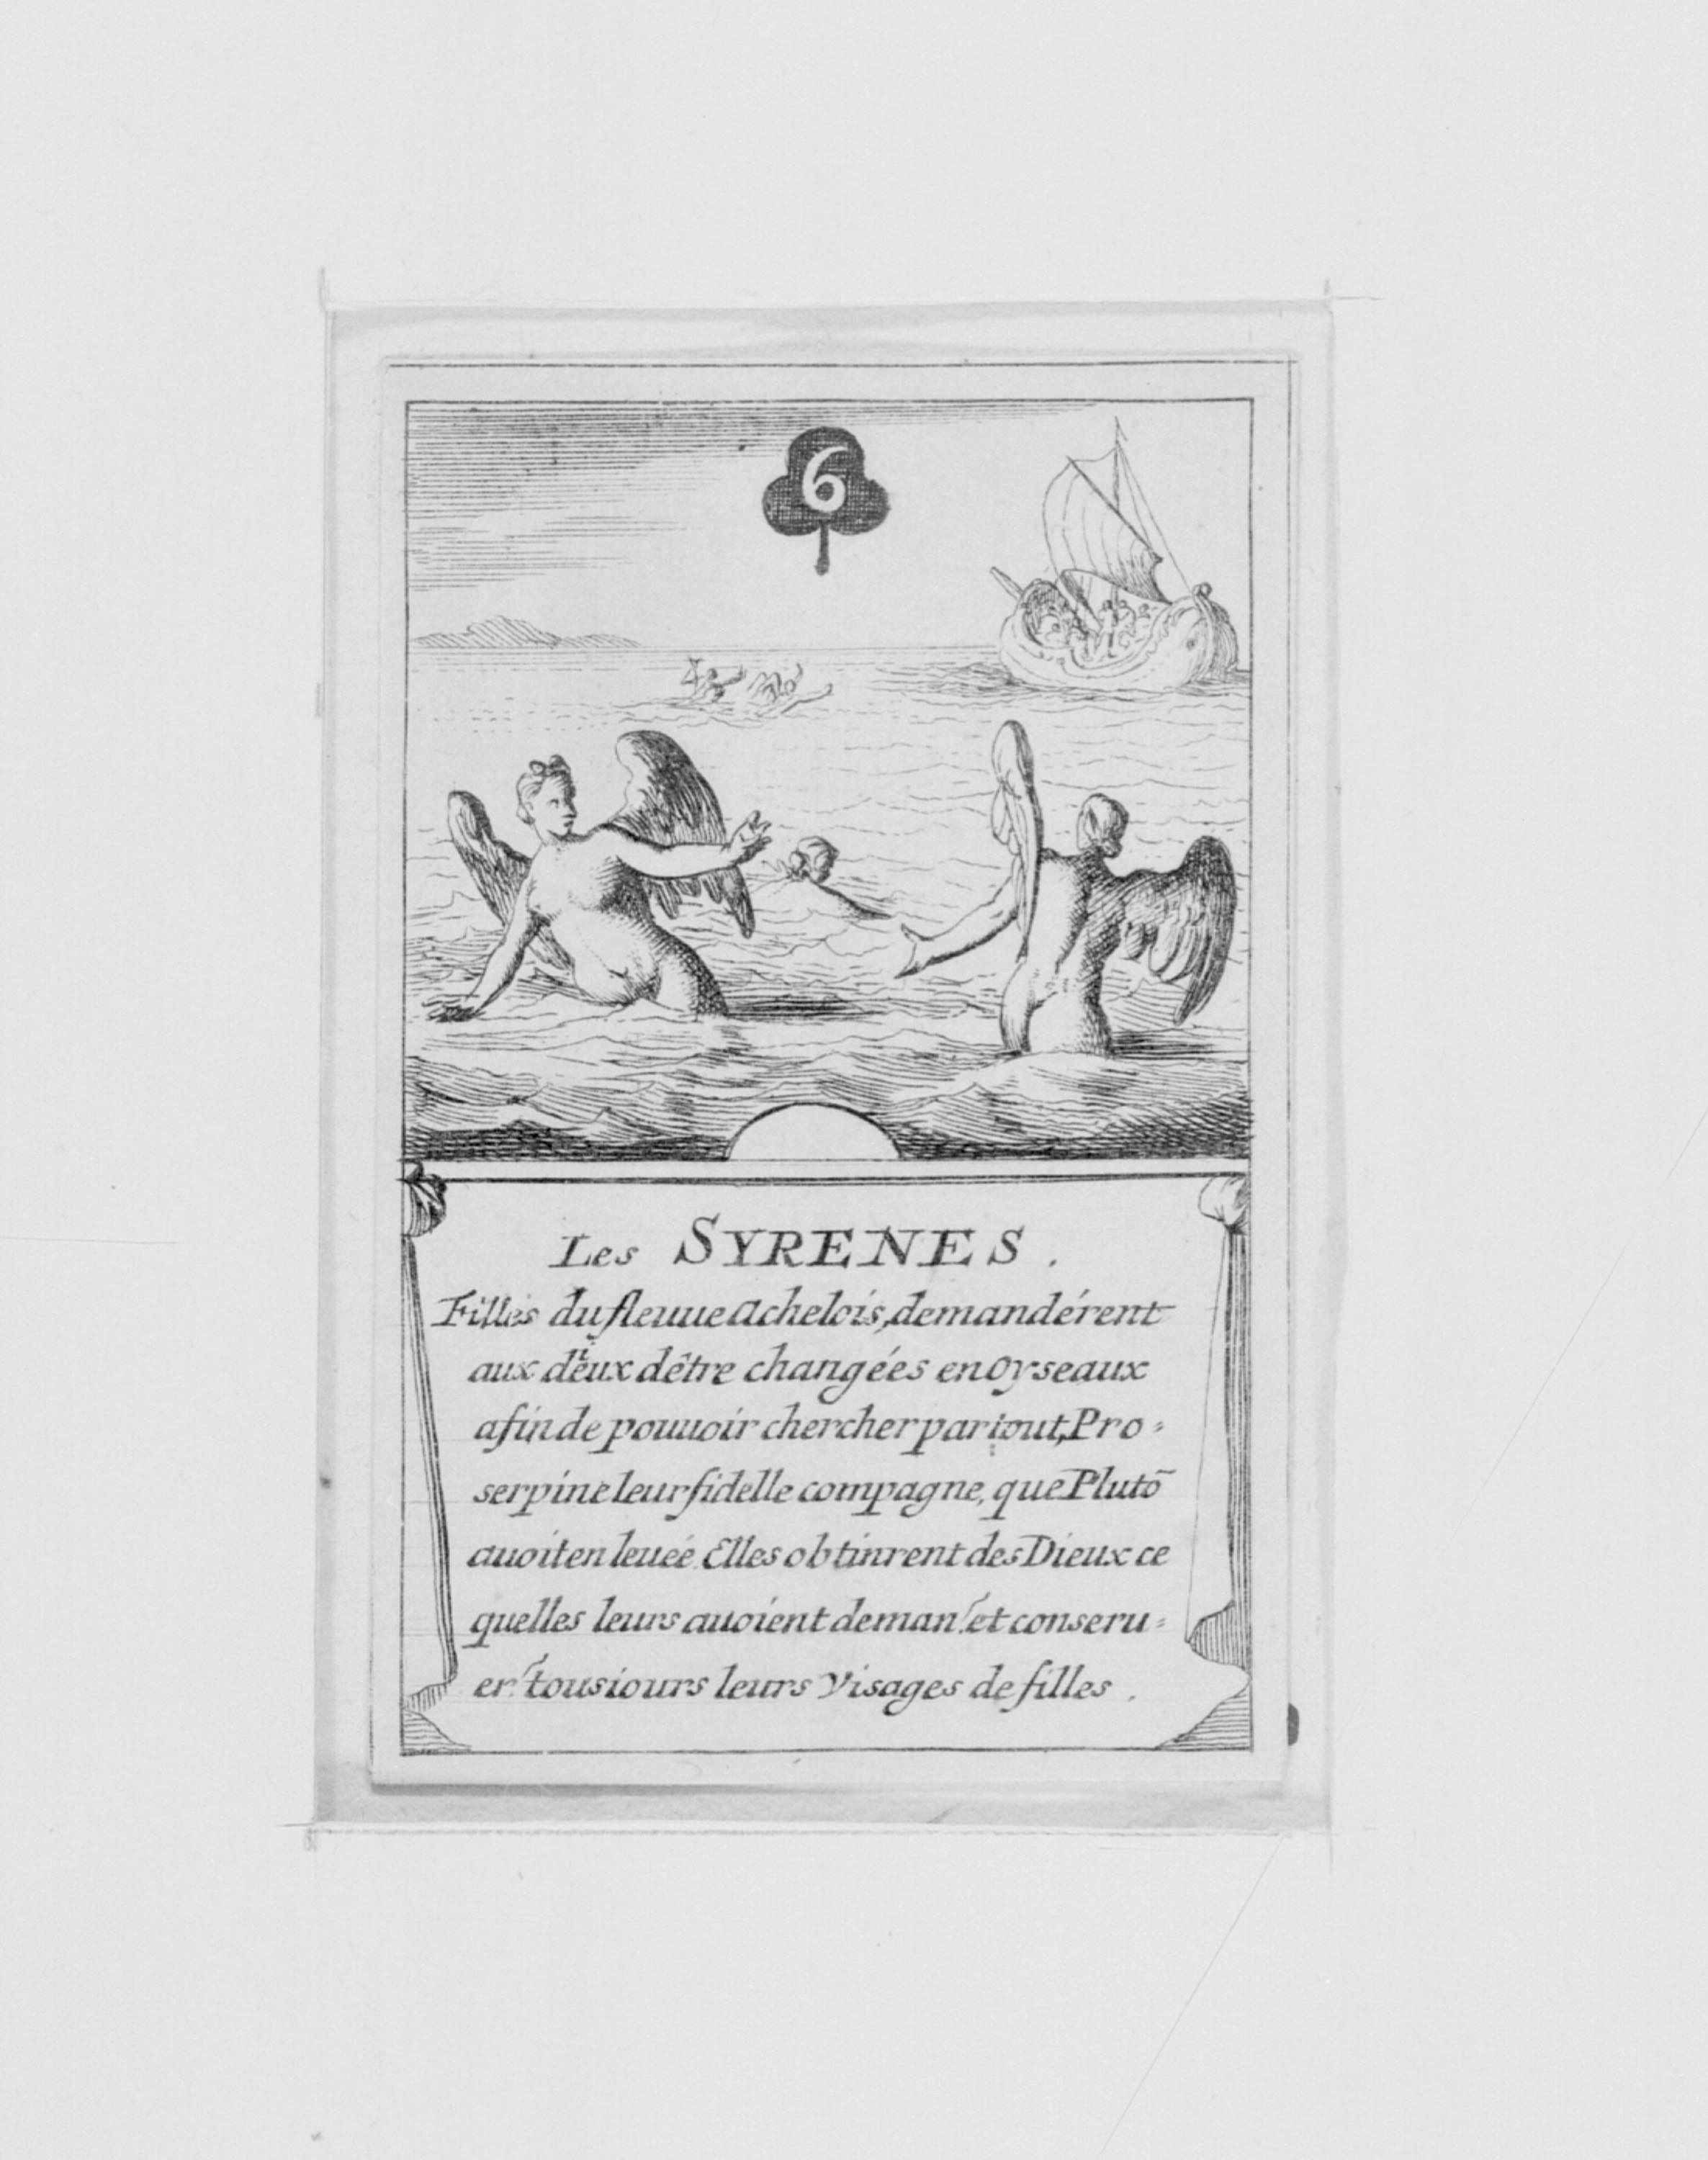 6
Les SYRENES.
Filles du fleuue Achelois, demandérent
aux dieux dêtre changées en Oyseaux
afin de pouuoir chercher partout, Pro=
serpine leur fidelle compagne, que Plutō
auoit enleuée. Elles obtinrent des Dieux ce
quelles leurs auoient deman.^r et conseru=
er.^t tousiours leurs Visages de filles.